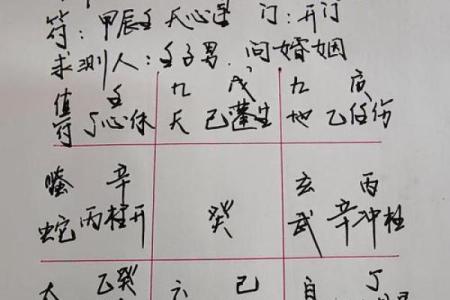 符：甲辰壬 天心星 门：开门
求测人：壬子男．问婚姻
值 壬 九 戊 九 庚
符 丁心休 天 己蓬生 地 乙任伤
螣 辛 玄 丙
蛇 丙柱开 癸 武 辛冲杜
太 乙癸 六 己 白 丁